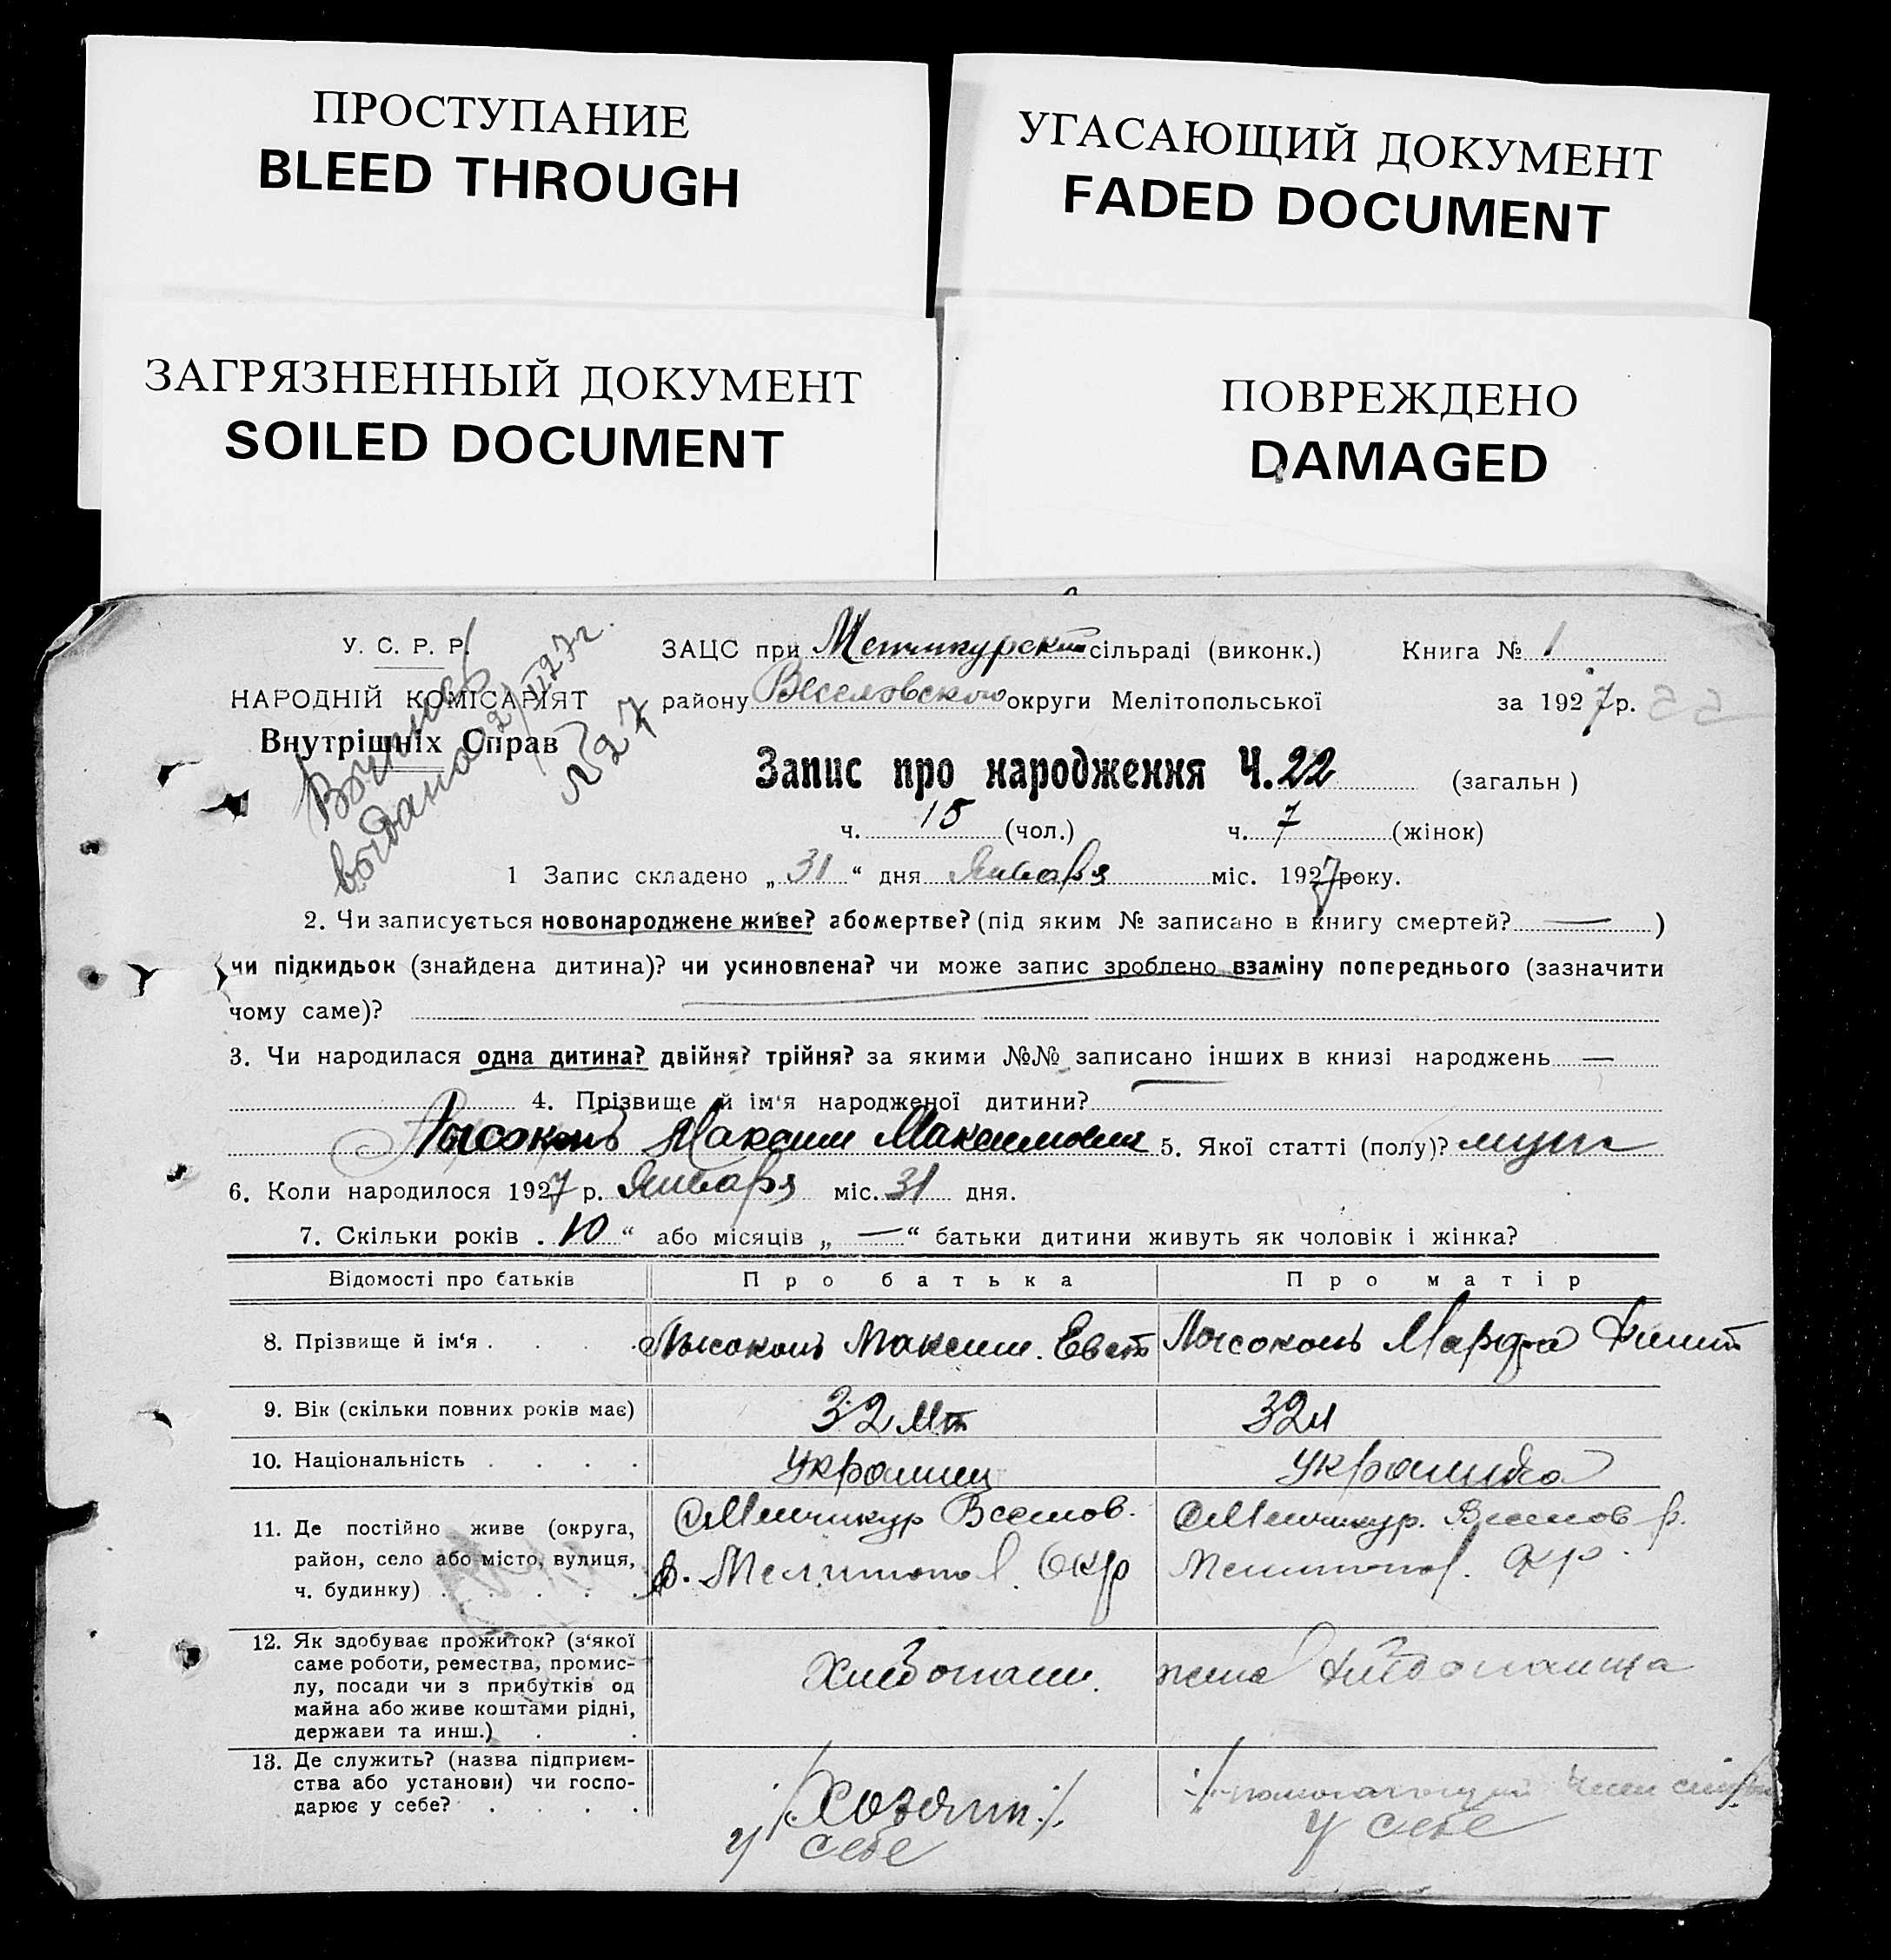 ПРОСТУПАНИЕ
BLEED THROUGH
УГАСАЮЩИЙ ДОКУМЕНТ
FADED DOCUMENT
ЗАГРЯЗНЕННЫЙ ДОКУМЕНТ
SOILED DOCUMENT
ПОВРЕЖДЕНО
DAMAGED
У. С. Р. Р.
НАРОДНІЙ КОМІСАРІЯТ
Внутрішніх Справ
Выпись
выдана
№ 27
ЗАЦС при сільраді (виконк.) Книга № 1
району Веселовского округи Мелітопольської за 1927 р.
Запис про народження Ч. 22 (загальн )
ч. 15 (чол.) ч. 7 (жінок)
1 Запис складено „ 31 “ дня Января міс. 1927 року.
2. Чи записується новонароджене живе? або мертве? (під яким № записано в книгу смертей? — )
чи підкидьок (знайдена дитина)? чи усиновлена? чи може запис зроблено взаміну попереднього (зазначити
чому саме)?
3. Чи народилася одна дитина? двійня? трійня? за якими №№ записано інших в книзі народжень —
4. Прізвище й ім‘я народженої дитини?
Лысоконь Максим Максимович 5. Якої статті (полу)? муж
6. Коли народилося 1927 р. Января міс. 31 дня.
7. Скільки років „ 10 “ або місяців „ — “ батьки дитини живуть як чоловік і жінка?
Відомості про батьків Про батька Про матір
8. Прізвище й ім‘я . . . . Лысоконь Максим Евст Лысоконь Марфа
9. Вік (скільки повних років має) 32 лет 32 л
10. Національність . . . . Украинец Украинка
11. Де постійно живе (округа, с Менчикур Веселов. с Менчикур. Веселов р.
район, село або місто, вулиця, р. Мелитопол. Окр Мелитопол. Окр.
ч. будинку) . . . .
12. Як здобуває прожиток? (з‘якої
саме роботи, ремества, промис- Хлебопаш. жена хлебопашца
лу, посади чи з прибутків од
майна або живе коштами рідні,
держави та инш.) . .
13. Де служить? (назва підприєм-
ства або установи) чи госпо- Хозяин помогающий член семьи
дарює у себе? . . . . у себе у себе